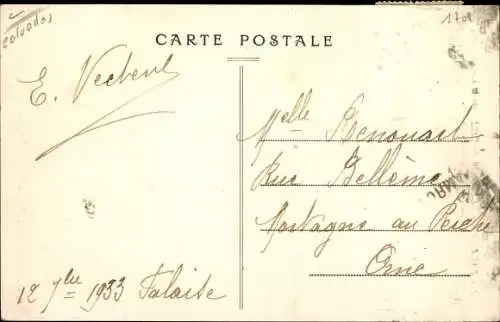 Calvados
1708
CARTE POSTALE
E.
Melle Renouart
Rue Bellême
Mortagne au Perche
Orne
12 7bre 1933 Falaise